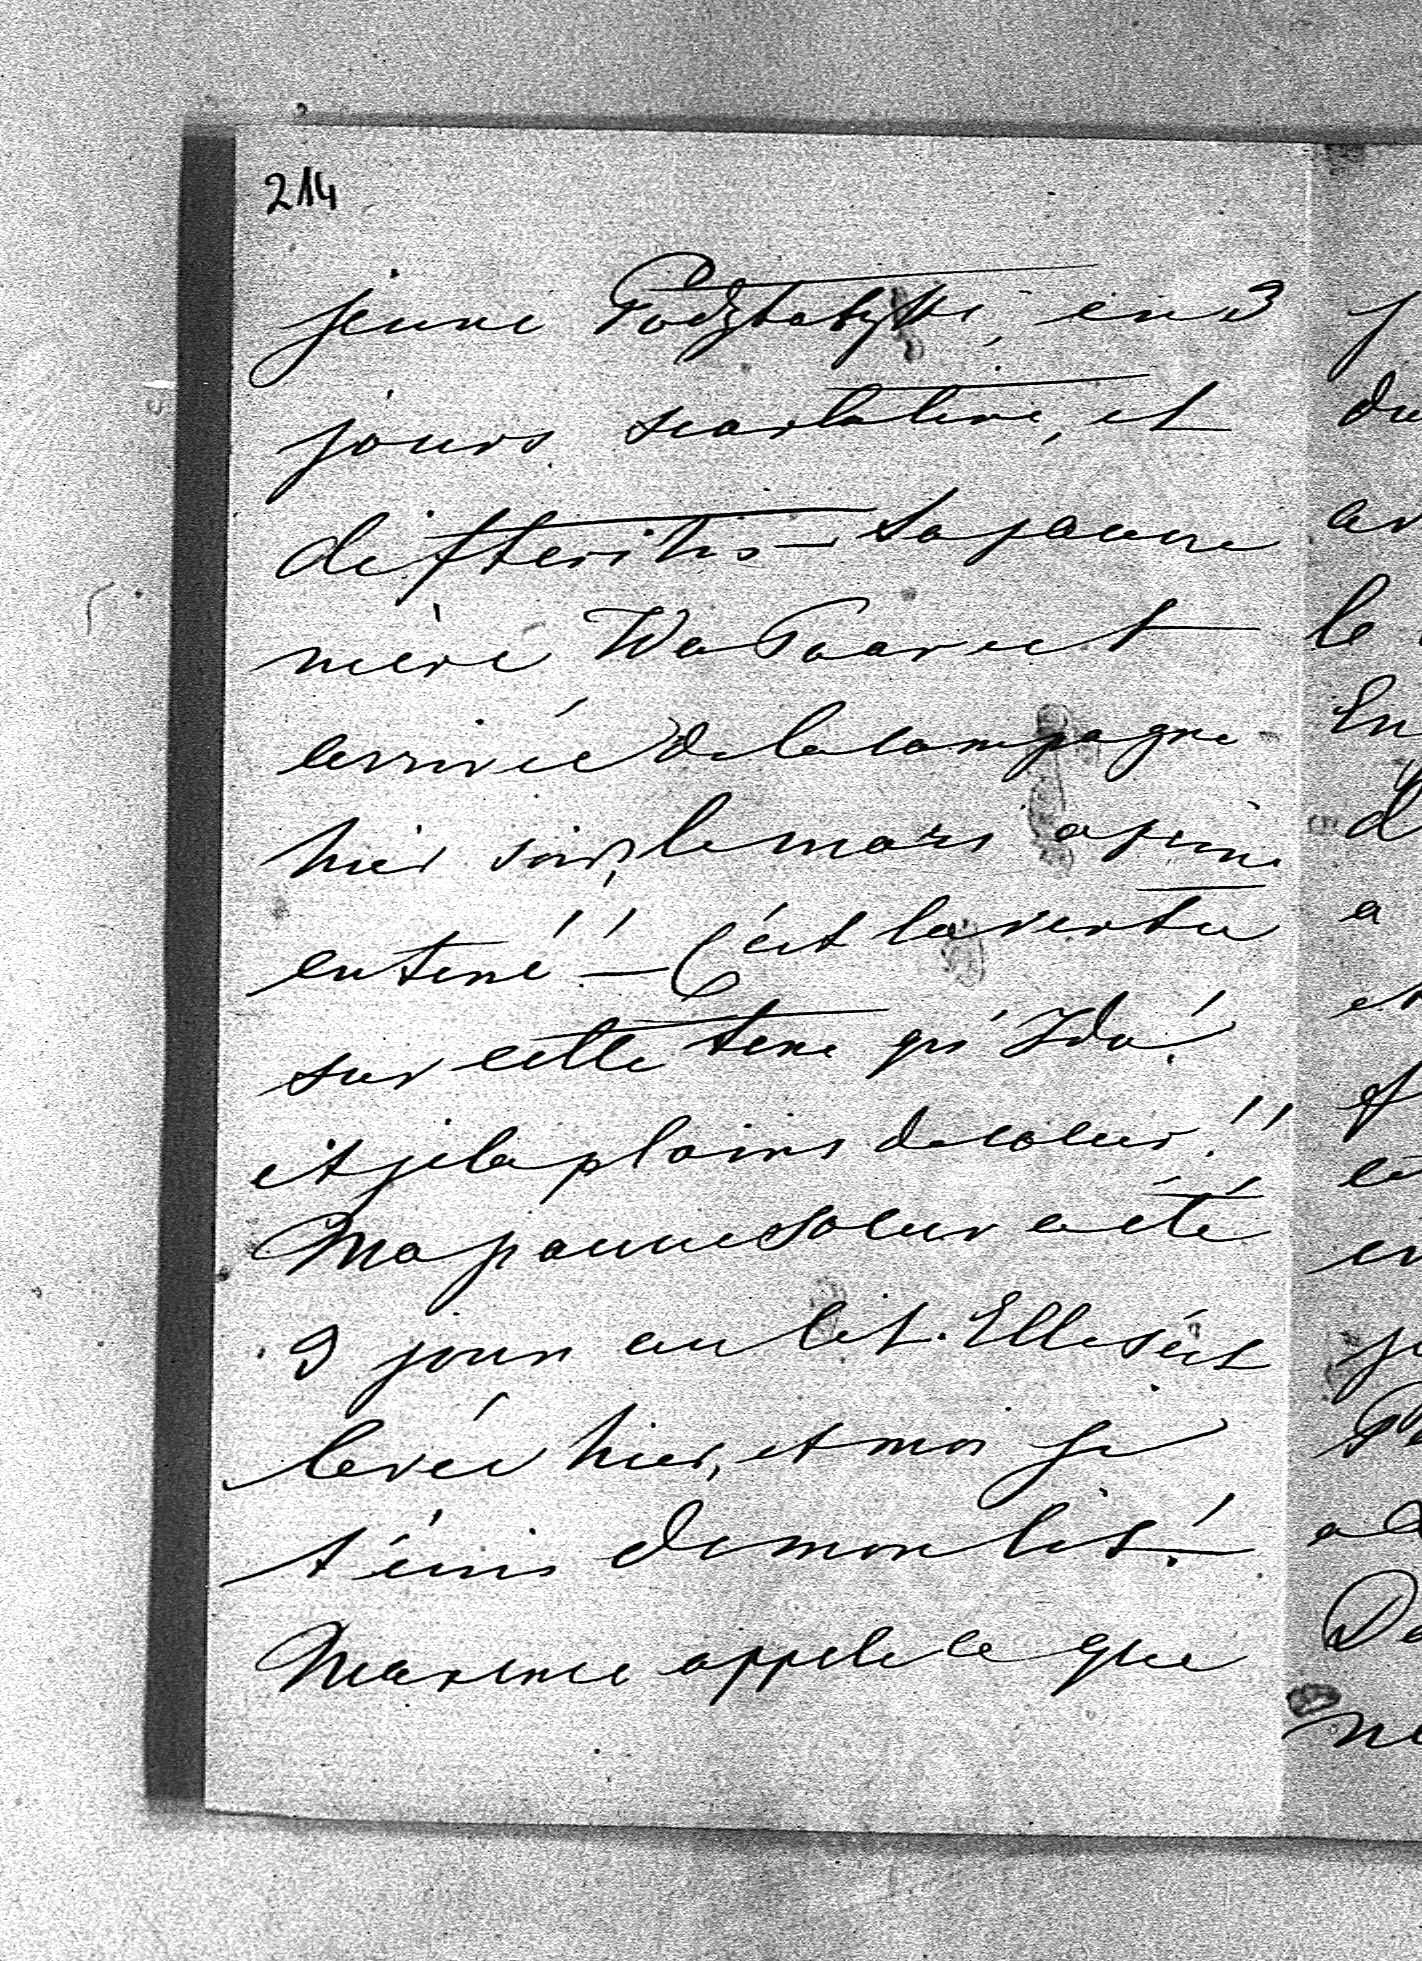 214
jeune en 3
jours scarlatine, et
difteritis — Sa pauvre
mère Ida est
arrivée de la campagne
hier soir, le mari a peine
enterré!! — C'est la vertu
sur cette terre qu'Ida!
et je la plains de coeur!!
Ma pauvre soeur a été
9 jours au lit. Elle s'est
levée hier, et moi je
t'écris de mon lit!
appele ce que